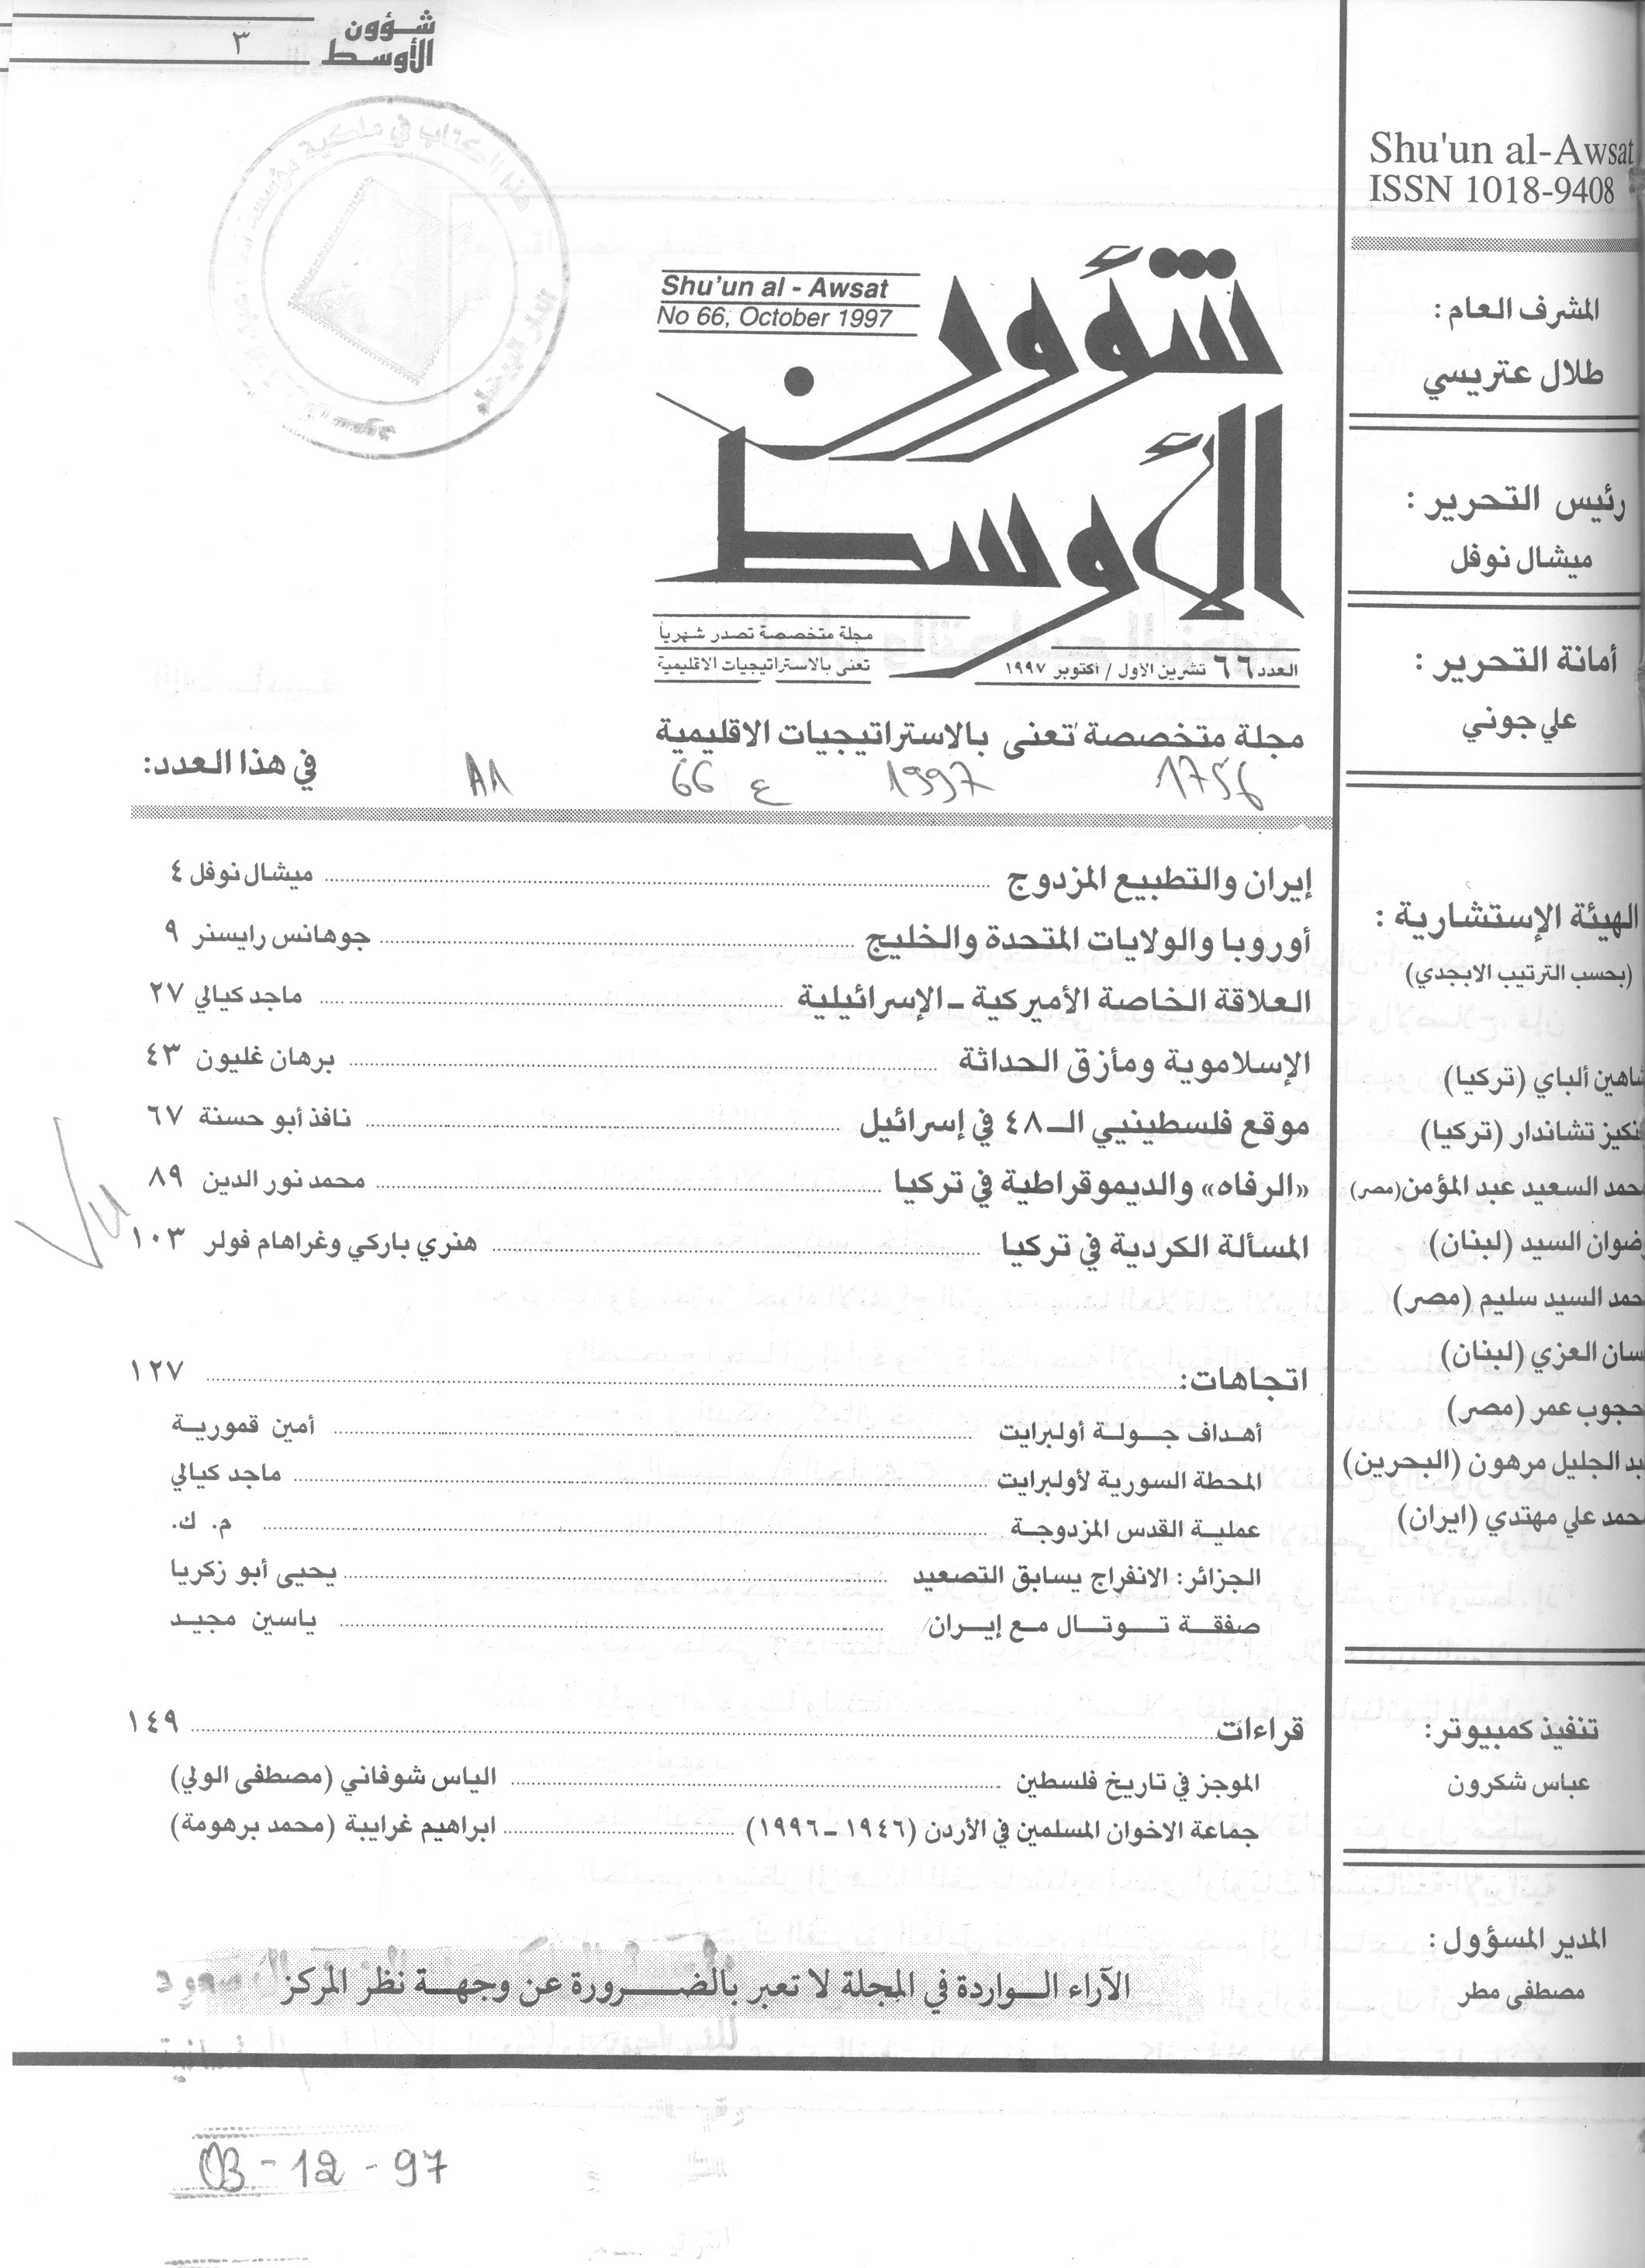 شؤون
الأوسط
٣
Shu'un al-Awsat
ISSN 1018-9408
المشرف العام :
طلال عتريسي
رئيس التحرير :
ميشال نوفل
أمانة التحرير :
علي جوني
الهيئة الإستشارية :
(بحسب الترتيب الابجدي)
شاهين ألباي (تركيا)
تشاندار (تركيا)
السعيد عبد المؤمن (مصر)
رضوان السيد (لبنان)
السيد سليم (مصر)
العزي (لبنان)
عمر (مصر)
الجليل مرهون (البحرين)
علي مهتدي (ايران)
تنفيذ كمبيوتر:
عباس شكرون
المدير المسؤول :
مصطفى مطر
Shu'un al - Awsat
No 66, October 1997
شؤون
الأوسط
مجلة متخصصة تصدر شهرياً
تعنى بالاستراتيجيات الاقليمية
العدد ٦٦ تشرين الأول / اكتوبر ١٩٩٧
مجلة متخصصة تعنى بالاستراتيجيات الاقليمية
1756 1997 ع 66 A1
في هذا العدد:
إيران والتطبيع المزدوج ........ ميشال نوفل ٤
أوروبا والولايات المتحدة والخليج ........ جوهانس رايسنر ٩
العلاقة الخاصة الأميركية ـ الإسرائيلية ........ ماجد كيالي ٢٧
الإسلاموية ومأزق الحداثة ........ برهان غليون ٤٣
موقع فلسطينيي الـ ٤٨ في إسرائيل ........ نافذ أبو حسنة ٦٧
«الرفاه» والديموقراطية في تركيا ........ محمد نور الدين ٨٩
المسألة الكردية في تركيا ........ هنري باركي وغراهام فولر ١٠٣
Vu
اتجاهات: ........ ١٢٧
أهداف جولة أولبرايت ........ أمين قمورية
المحطة السورية لأولبرايت ........ ماجد كيالي
عملية القدس المزدوجة ........ م. ك.
الجزائر: الانفراج يسابق التصعيد ........ يحيى أبو زكريا
صفقة توتال مع إيران ........ ياسين مجيد
قراءات ........ ١٤٩
الموجز في تاريخ فلسطين ........ الياس شوفاني (مصطفى الولي)
جماعة الاخوان المسلمين في الأردن (١٩٤٦ ـ ١٩٩٦) ........ ابراهيم غرايبة (محمد برهومة)
الآراء الواردة في المجلة لا تعبر بالضرورة عن وجهة نظر المركز
03 - 12 - 97